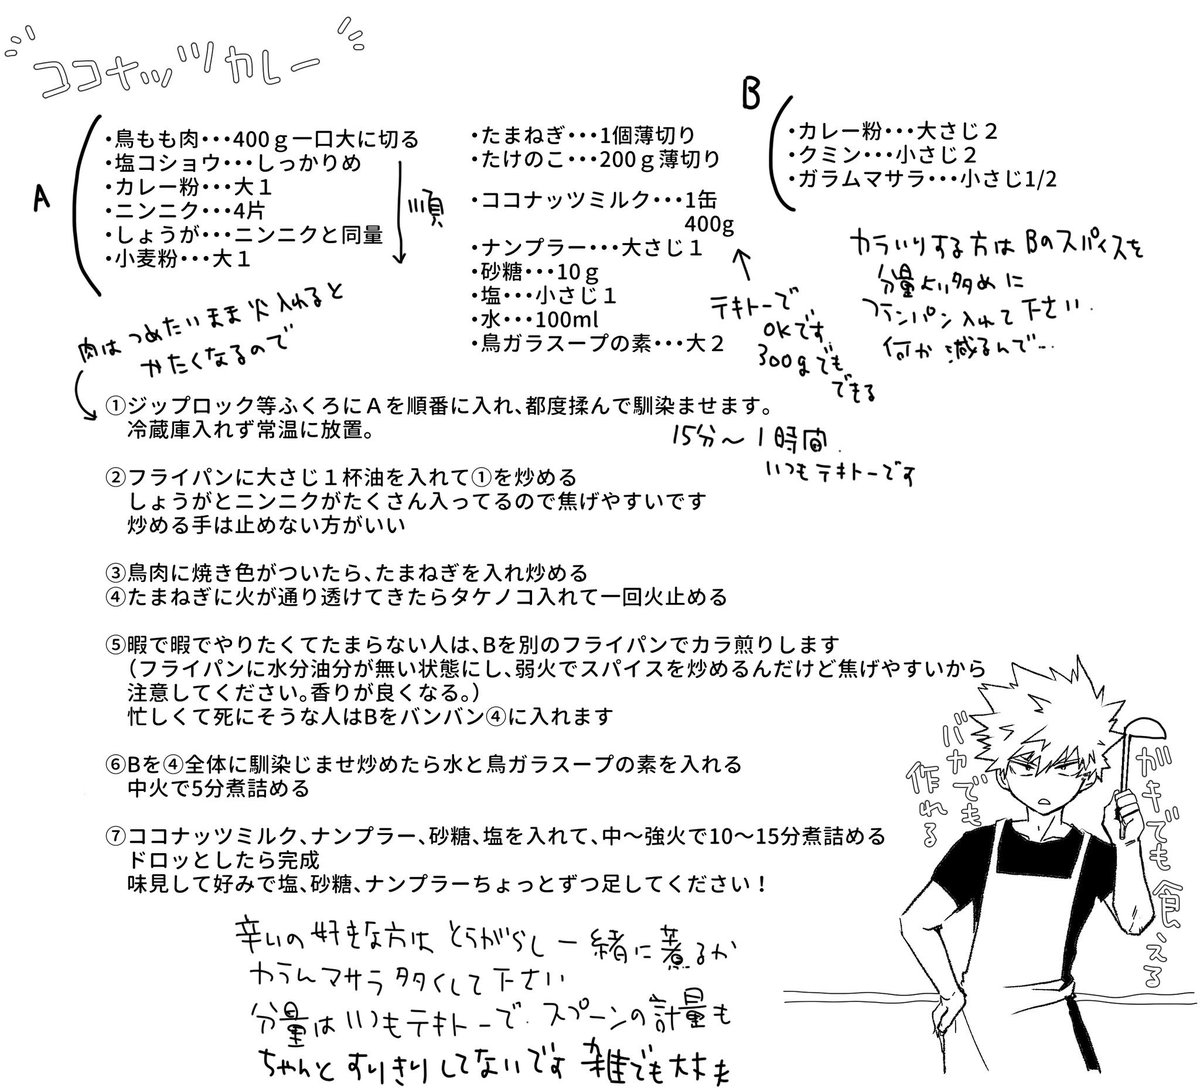 ココナッツカレー
A
・鳥もも肉・・・400ｇ一口大に切る
・塩コショウ・・・しっかりめ
・カレー粉・・・大１
・ニンニク・・・4片
・しょうが・・・ニンニクと同量
・小麦粉・・・大１
順
・たまねぎ・・・1個薄切り
・たけのこ・・・200ｇ薄切り
・ココナッツミルク・・・1缶
400g
・ナンプラー・・・大さじ１
・砂糖・・・10ｇ
・塩・・・小さじ１
・水・・・100ml
・鳥ガラスープの素・・・大２
テキトーで
OKです
300gでも
できる
B
・カレー粉・・・大さじ２
・クミン・・・小さじ２
・ガラムマサラ・・・小さじ1/2
カラいりする方はBのスパイスを
分量より多めに
フランパン入れて下さい
何か減るんで…
肉はつめたいまま火入れると
かたくなるので
①ジップロック等ふくろにＡを順番に入れ、都度揉んで馴染ませます。
冷蔵庫入れず常温に放置。
15分〜1時間
いつもテキトーです
②フライパンに大さじ１杯油を入れて①を炒める
しょうがとニンニクがたくさん入ってるので焦げやすいです
炒める手は止めない方がいい
③鳥肉に焼き色がついたら、たまねぎを入れ炒める
④たまねぎに火が通り透けてきたらタケノコ入れて一回火止める
⑤暇で暇でやりたくてたまらない人は、Bを別のフライパンでカラ煎りします
（フライパンに水分油分が無い状態にし、弱火でスパイスを炒めるんだけど焦げやすいから
注意してください。香りが良くなる。）
忙しくて死にそうな人はBをバンバン④に入れます
⑥Bを④全体に馴染じませ炒めたら水と鳥ガラスープの素を入れる
中火で5分煮詰める
⑦ココナッツミルク、ナンプラー、砂糖、塩を入れて、中〜強火で10〜15分煮詰める
ドロッとしたら完成
味見して好みで塩、砂糖、ナンプラーちょっとずつ足してください！
辛いの好きな方はとうがらし一緒に煮るか
がらんマサラ多くして下さい
分量はいつもテキトーで、スプーンの計量も
ちゃんとすりきりしてないです 雑でも大丈夫
ガキでも食える
バカでも
作れる